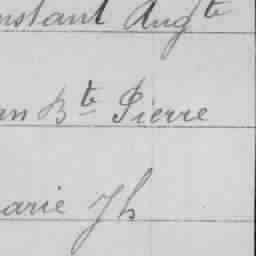 nstant Aug^te
an B^te Pierre
arie Jh